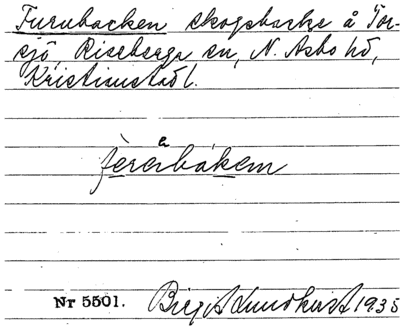 Furubacken skogsbacke å Tor-
sjö, Riseberga sn, N. Åsbo hd,
Kristianstad l.
Nr 5501. Birgit Lundkvist 1935